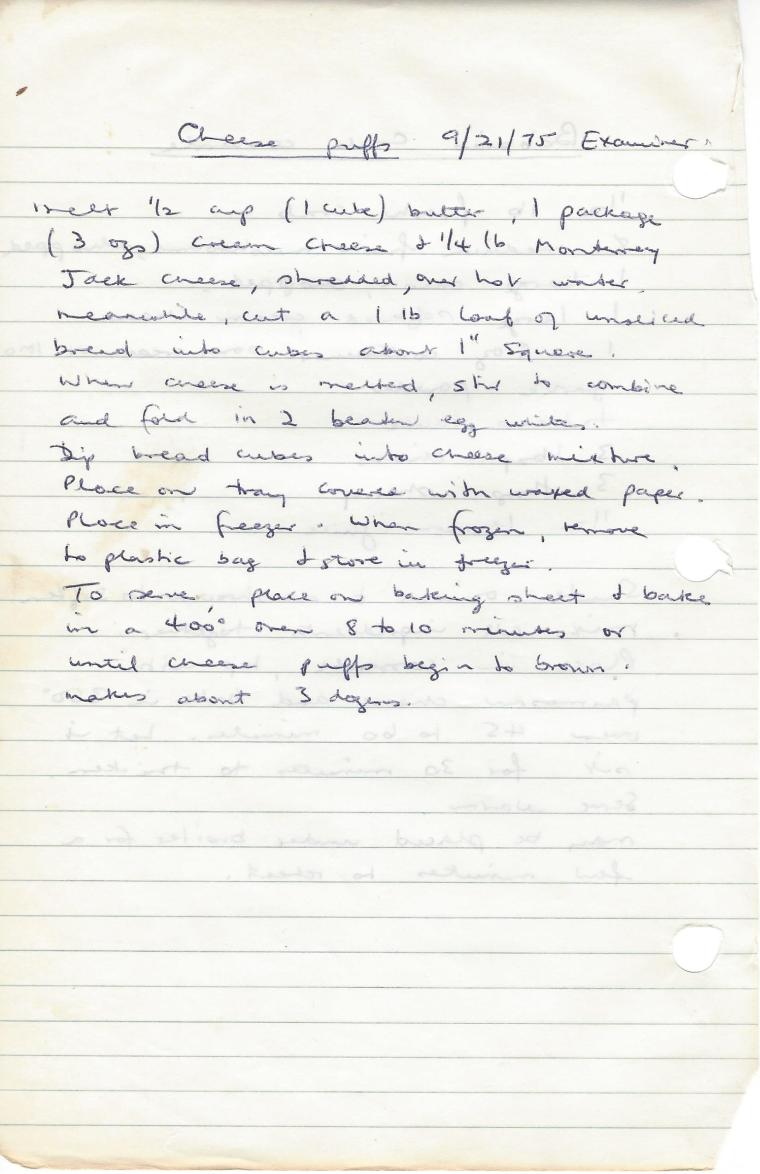 Cheese puffs 9/21/75 Examiner.
melt 1/2 cup (1 cube) butter, 1 package
(3 ozs) cream cheese & 1/4 lb Monterrey
Jack cheese, shredded, over hot water.
meanwhile, cut a 1 lb loaf of unsliced
bread into cubes about 1" square.
When cheese is melted, stir to combine
and fold in 2 beaten egg whites.
Dip bread cubes into cheese mixture.
Place on tray covered with waxed paper.
Place in freezer. When frozen, remove
to plastic bag & store in freezer.
To serve, place on baking sheet & bake
in a 400° oven 8 to 10 minutes or
until cheese puffs begin to brown.
makes about 3 dozens.